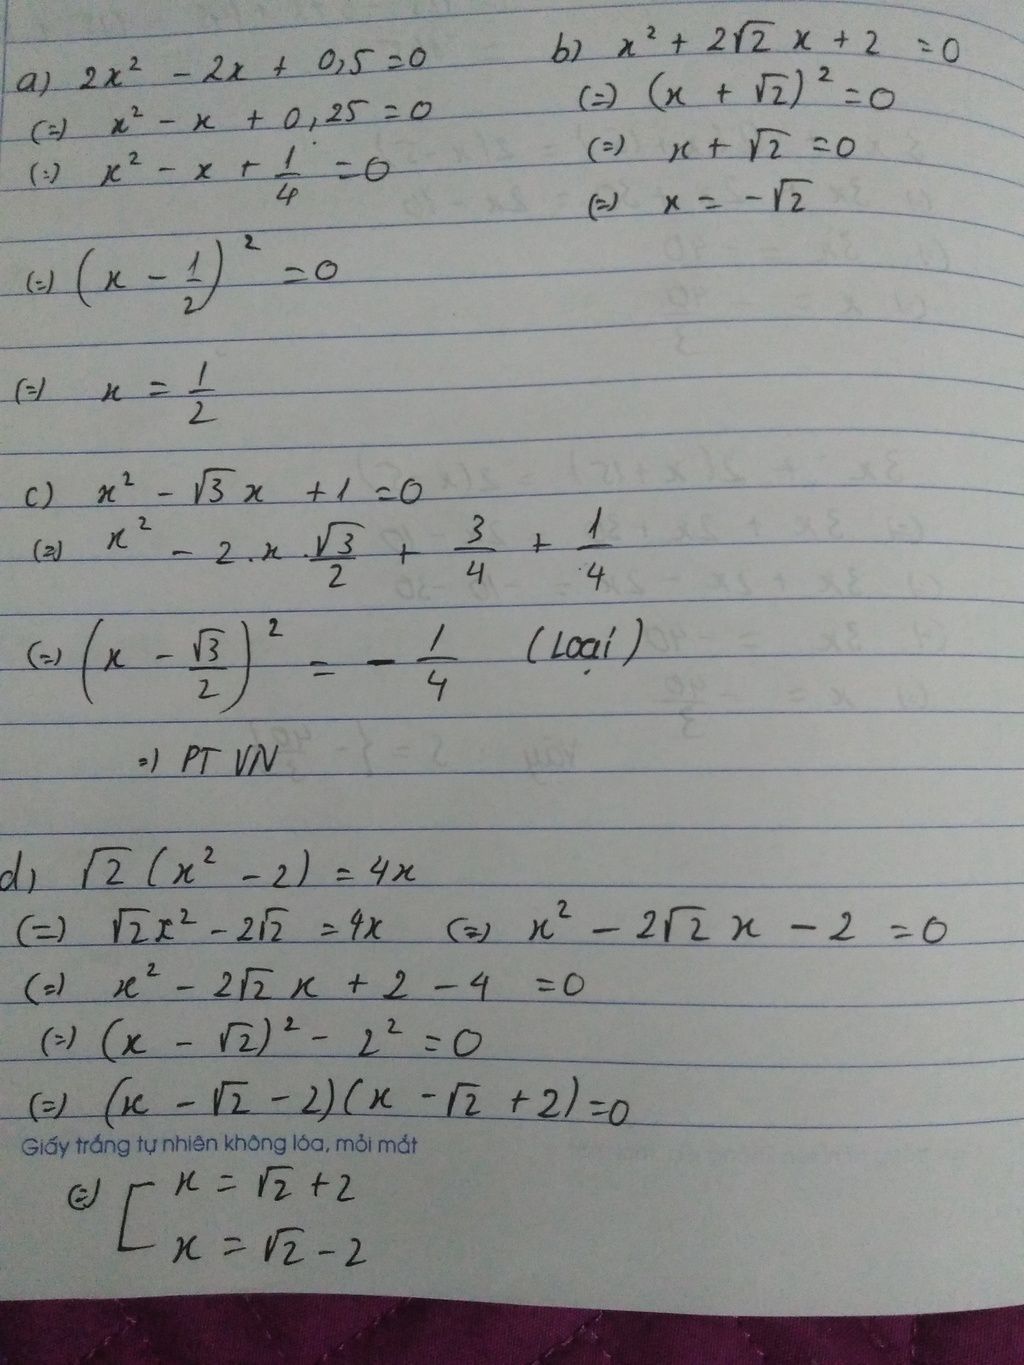 a) 2x² - 2x + 0,5 = 0
(=) x² - x + 0,25 = 0
(=) x² - x + 1/4 = 0
(=) (x - 1/2)² = 0
(=) x = 1/2
b) x² + 2√2 x + 2 = 0
(=) (x + √2)² = 0
(=) x + √2 = 0
(=) x = -√2
c) x² - √3 x + 1 = 0
(=) x² - 2.x.√3/2 + 3/4 + 1/4
(=) (x - √3/2)² = - 1/4 (Loại)
=) PT VN
d) √2 (x² - 2) = 4x
(=) √2x² - 2√2 = 4x (=) x² - 2√2 x - 2 = 0
(=) x² - 2√2 x + 2 - 4 = 0
(=) (x - √2)² - 2² = 0
(=) (x - √2 - 2)(x - √2 + 2) = 0
Giấy trắng tự nhiên không lóa, mỏi mắt
(=) [ x = √2 + 2
x = √2 - 2